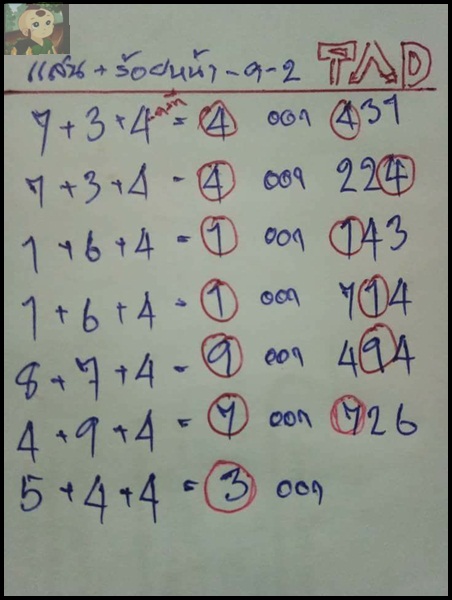 แสน + ร้อยหน้า - 9 - 2 TAD
7 + 3 + 4 = 4 ออก 431
7 + 3 + 4 - 4 ออก 224
1 + 6 + 4 = 1 ออก 143
1 + 6 + 4 = 1 ออก 714
8 + 7 + 4 - 9 ออก 494
4 + 9 + 4 = 7 ออก 726
5 + 4 + 4 = 3 ออก